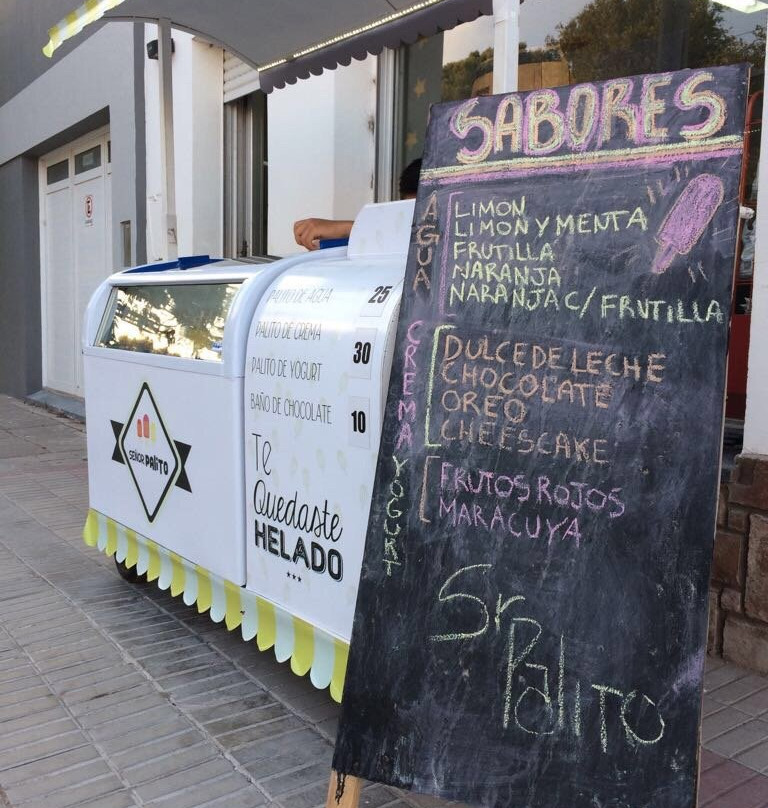 SABORES
AGUA
LIMON
LIMON Y MENTA
FRUTILLA
NARANJA
NARANJA C/ FRUTILLA
CREMA
DULCE DE LECHE
CHOCOLATE
OREO
CHEESCAKE
YOGURT
FRUTOS ROJOS
MARACUYA
Sr Palito
PALITO DE AGUA 25
PALITO DE CREMA
PALITO DE YOGURT 30
BAÑO DE CHOCOLATE 10
Te
Quedaste
HELADO
SEÑOR PALITO